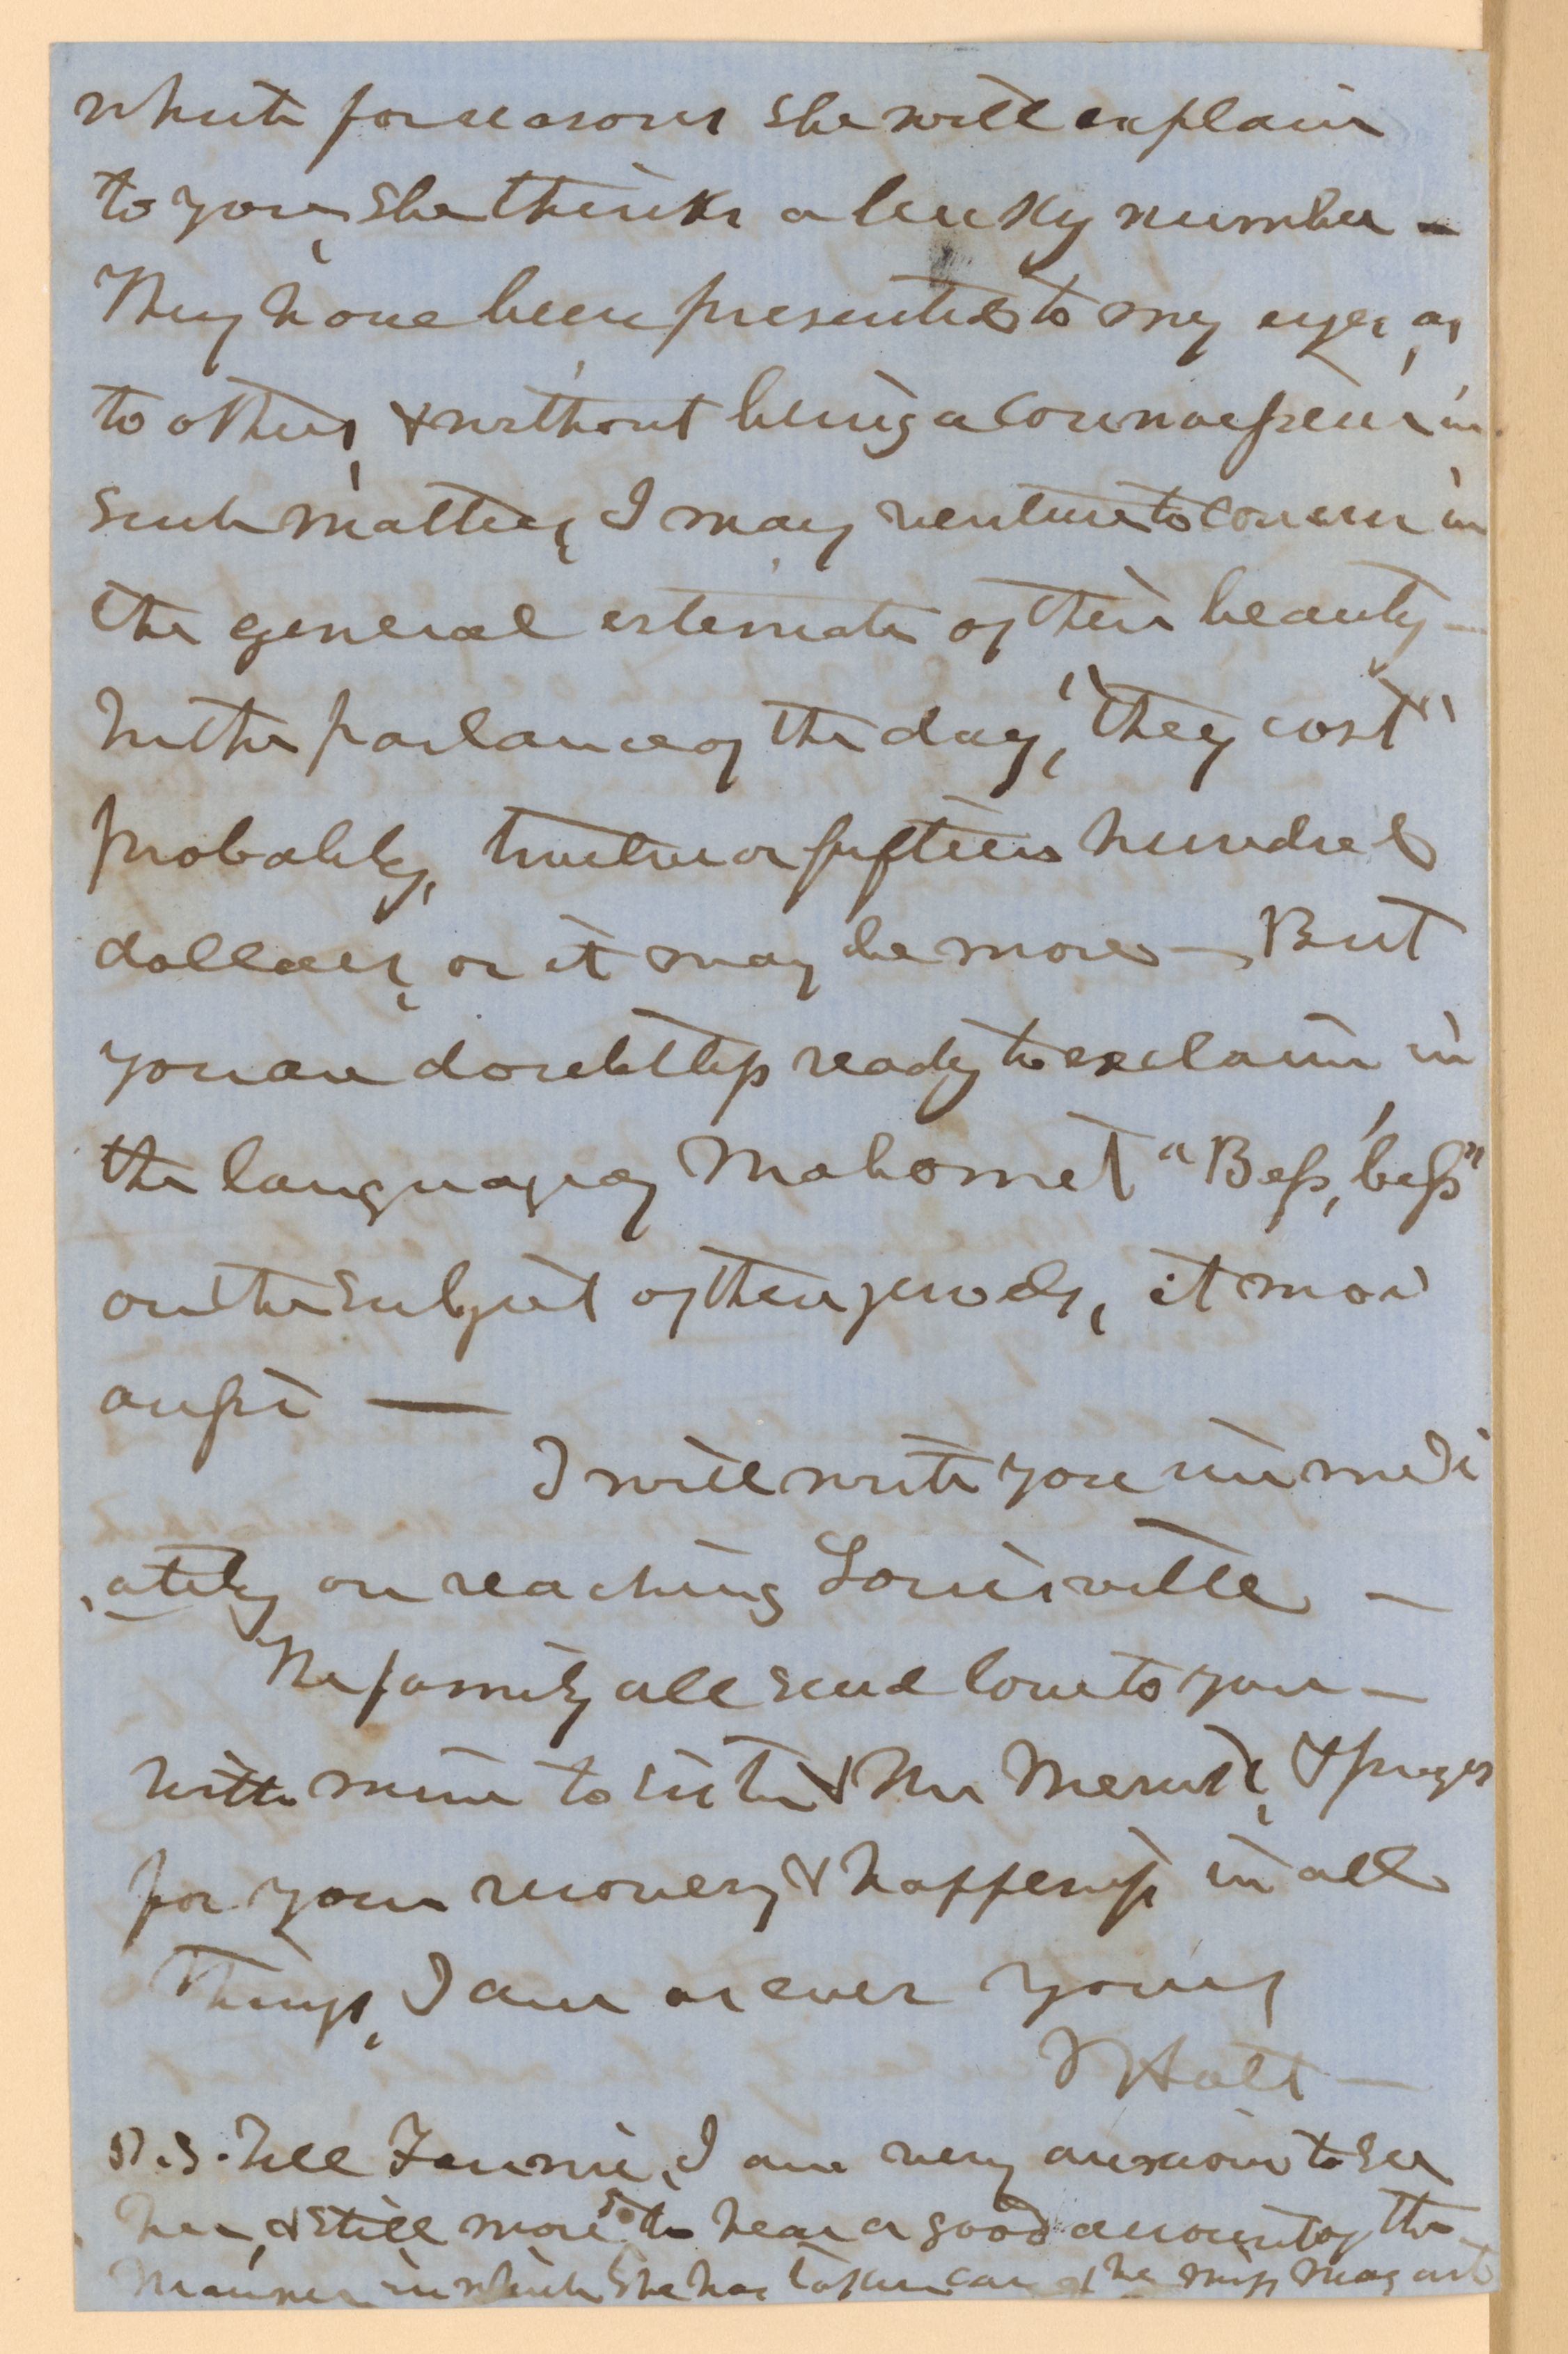 which for reasons she will explain
to you, she thinks a lucky number —
They have been presented to my eyes, as
to others, & without being a connoisseur in
such matters, I may venture to concur in
the general estimate of their beauty —
In the parlance of the day, "they cost"
probably, twelve or fifteen hundred
dollars, or it may be more —. But
you are doubtless ready to exclaim, in
the language of Mahomet "Bess, bess"
on the subject of these jewels, it moi
aussi —
I will write you immedi
,ately on reaching Louisville —
The family all send love to you —
With mine to sister & Mr Merrick, &
for your recovery & happiness in all
things, I am as ever yours
J Holt —
P.S. Tell Fannie, I am very anxious to see
her, & still more so to hear a good account of the
manner in which she has taken care of the miss Margaret